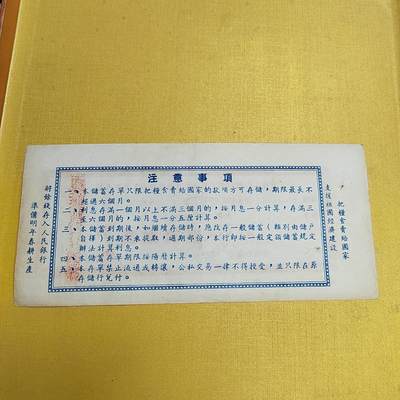 注意事項
一、本儲蓄存單只限把糧食賣給國家的款項方可存儲，期限最長不
超過六個月。
二、利息存滿一個月以上不滿三個月的，按月息一分計算，存滿三
個月的，按月息一分三厘計算。
三、本儲蓄到期後如繼續存時，應改存一般儲蓄（種類由儲户
自擇）到期不來提取，過期部份，本行即按一般定額儲蓄規定
辦法計算利息。
四、本儲蓄存單期限按陽曆計算。
五、本存單禁止流通或轉讓，公私交易一律不得授受，並只限在原
存單行兌付。
把糧食賣給國家
支援祖國經濟建設
將餘錢存入人民銀行
準備明年春耕生產